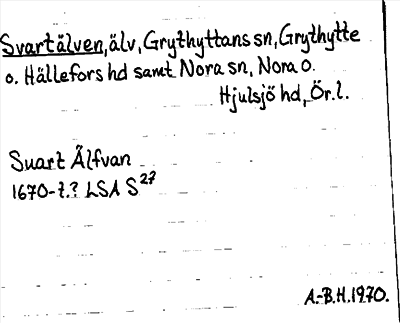 Svartälven, älv, Grythyttans sn, Grythytte
o. Hällefors hd samt Nora sn, Nora o.
Hjulsjö hd, Ör.l.
Svart Älfvan
1670-t.? LSA S 27
A.-B.H. 1970.